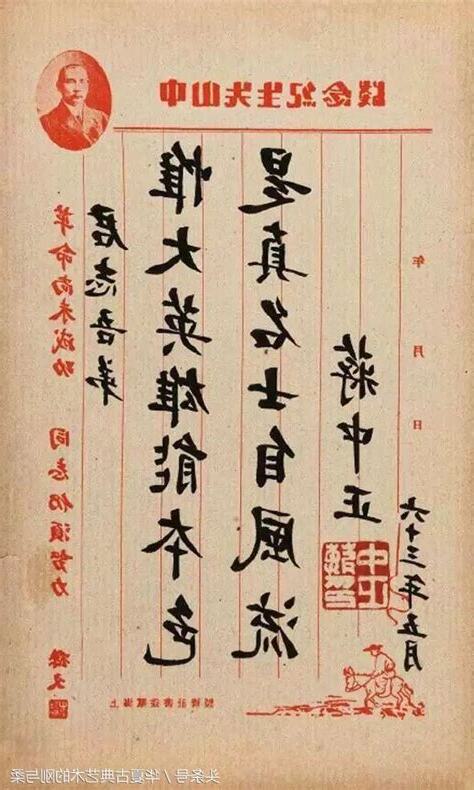 中山先生紀念牋
革命尚未成功 同志仍須努力
孫文
君志吾弟
惟大英雄能本色
是真名士自風流
蔣中正
六十三年五月
年月日
中正
头条号/华夏古典艺术的刚与柔